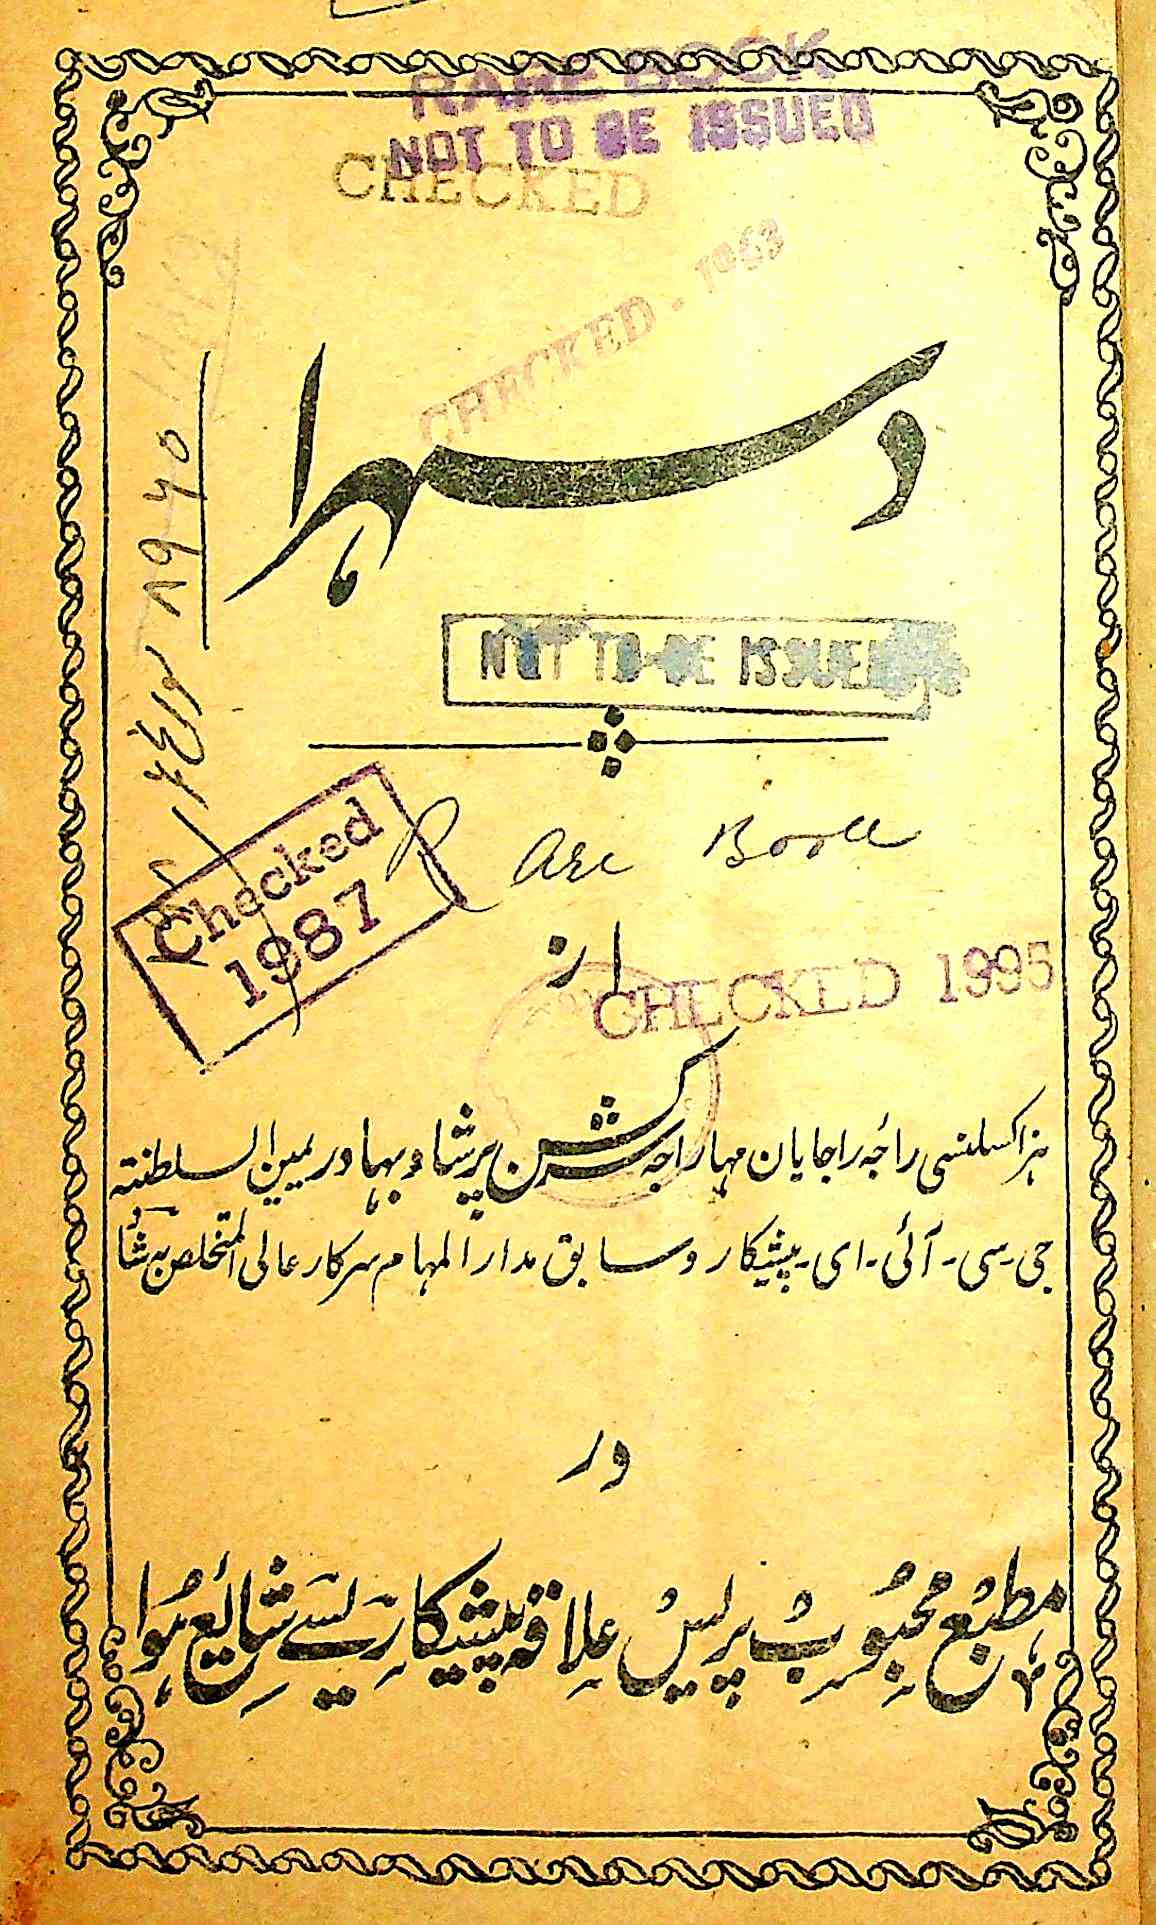 RARE BOOK
NOT TO BE ISSUED
CHECKED
CHECKED - 1963
دسہرا
NOT TO BE ISSUED
Rare Book
Checked
1987
از
CHECKED 1995
ہزاکسلنسی راجہ راجایان مہاراجہ کشن پرشاد بہادر یمین السلطنتہ
جی۔ سی۔ آئی۔ ای۔ پیشکار و سابق مدار المہام سرکار عالی المتخلص بہ شاد
در
مطبع محبوب پریس علاقہ پیشکاری سے شایع ہوا